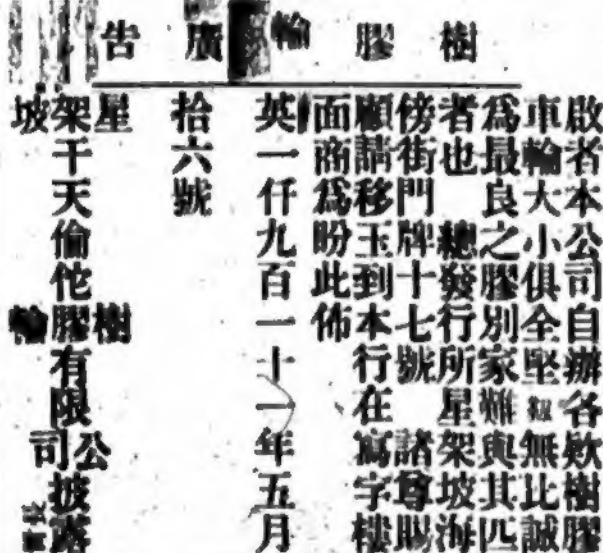 樹膠輪廣告
啟者本公司自辦各欵樹膠
車輪大小俱全堅無比誠
爲最良之膠別家難與其匹
者也 總發行所星架坡海
傍街門牌十七號 諸尊賜
顧請移玉到本行在寫字樓
面商爲盼此佈
英一仟九百一十一年五月
拾六號
星架坡干天倫佗樹膠輪有限公司披露